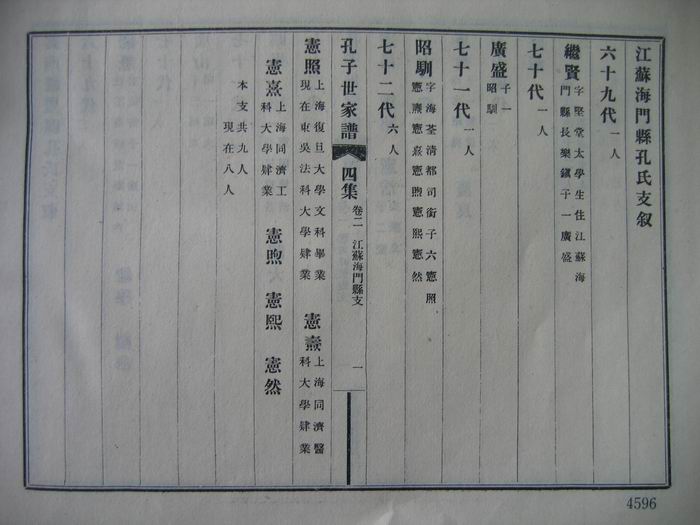 江蘇海門縣孔氏支叙
六十九代 一人
繼賢 字堅堂太學生住江蘇海
門縣長樂鎮子一廣盛
七十代 一人
廣盛 子一
昭馴
七十一代 一人
昭馴 字海荃清都司銜子六憲照
憲燾憲熹憲煦憲熙憲然
七十二代 六人
孔子世家譜 四集 卷二 江蘇海門縣支 一
憲照 上海復旦大學文科畢業
現在東吳法科大學肄業
憲燾 上海同濟醫
科大學肄業
憲熹 上海同濟工
科大學肄業
憲煦 憲熙 憲然
本支共九人
現在八人
4596